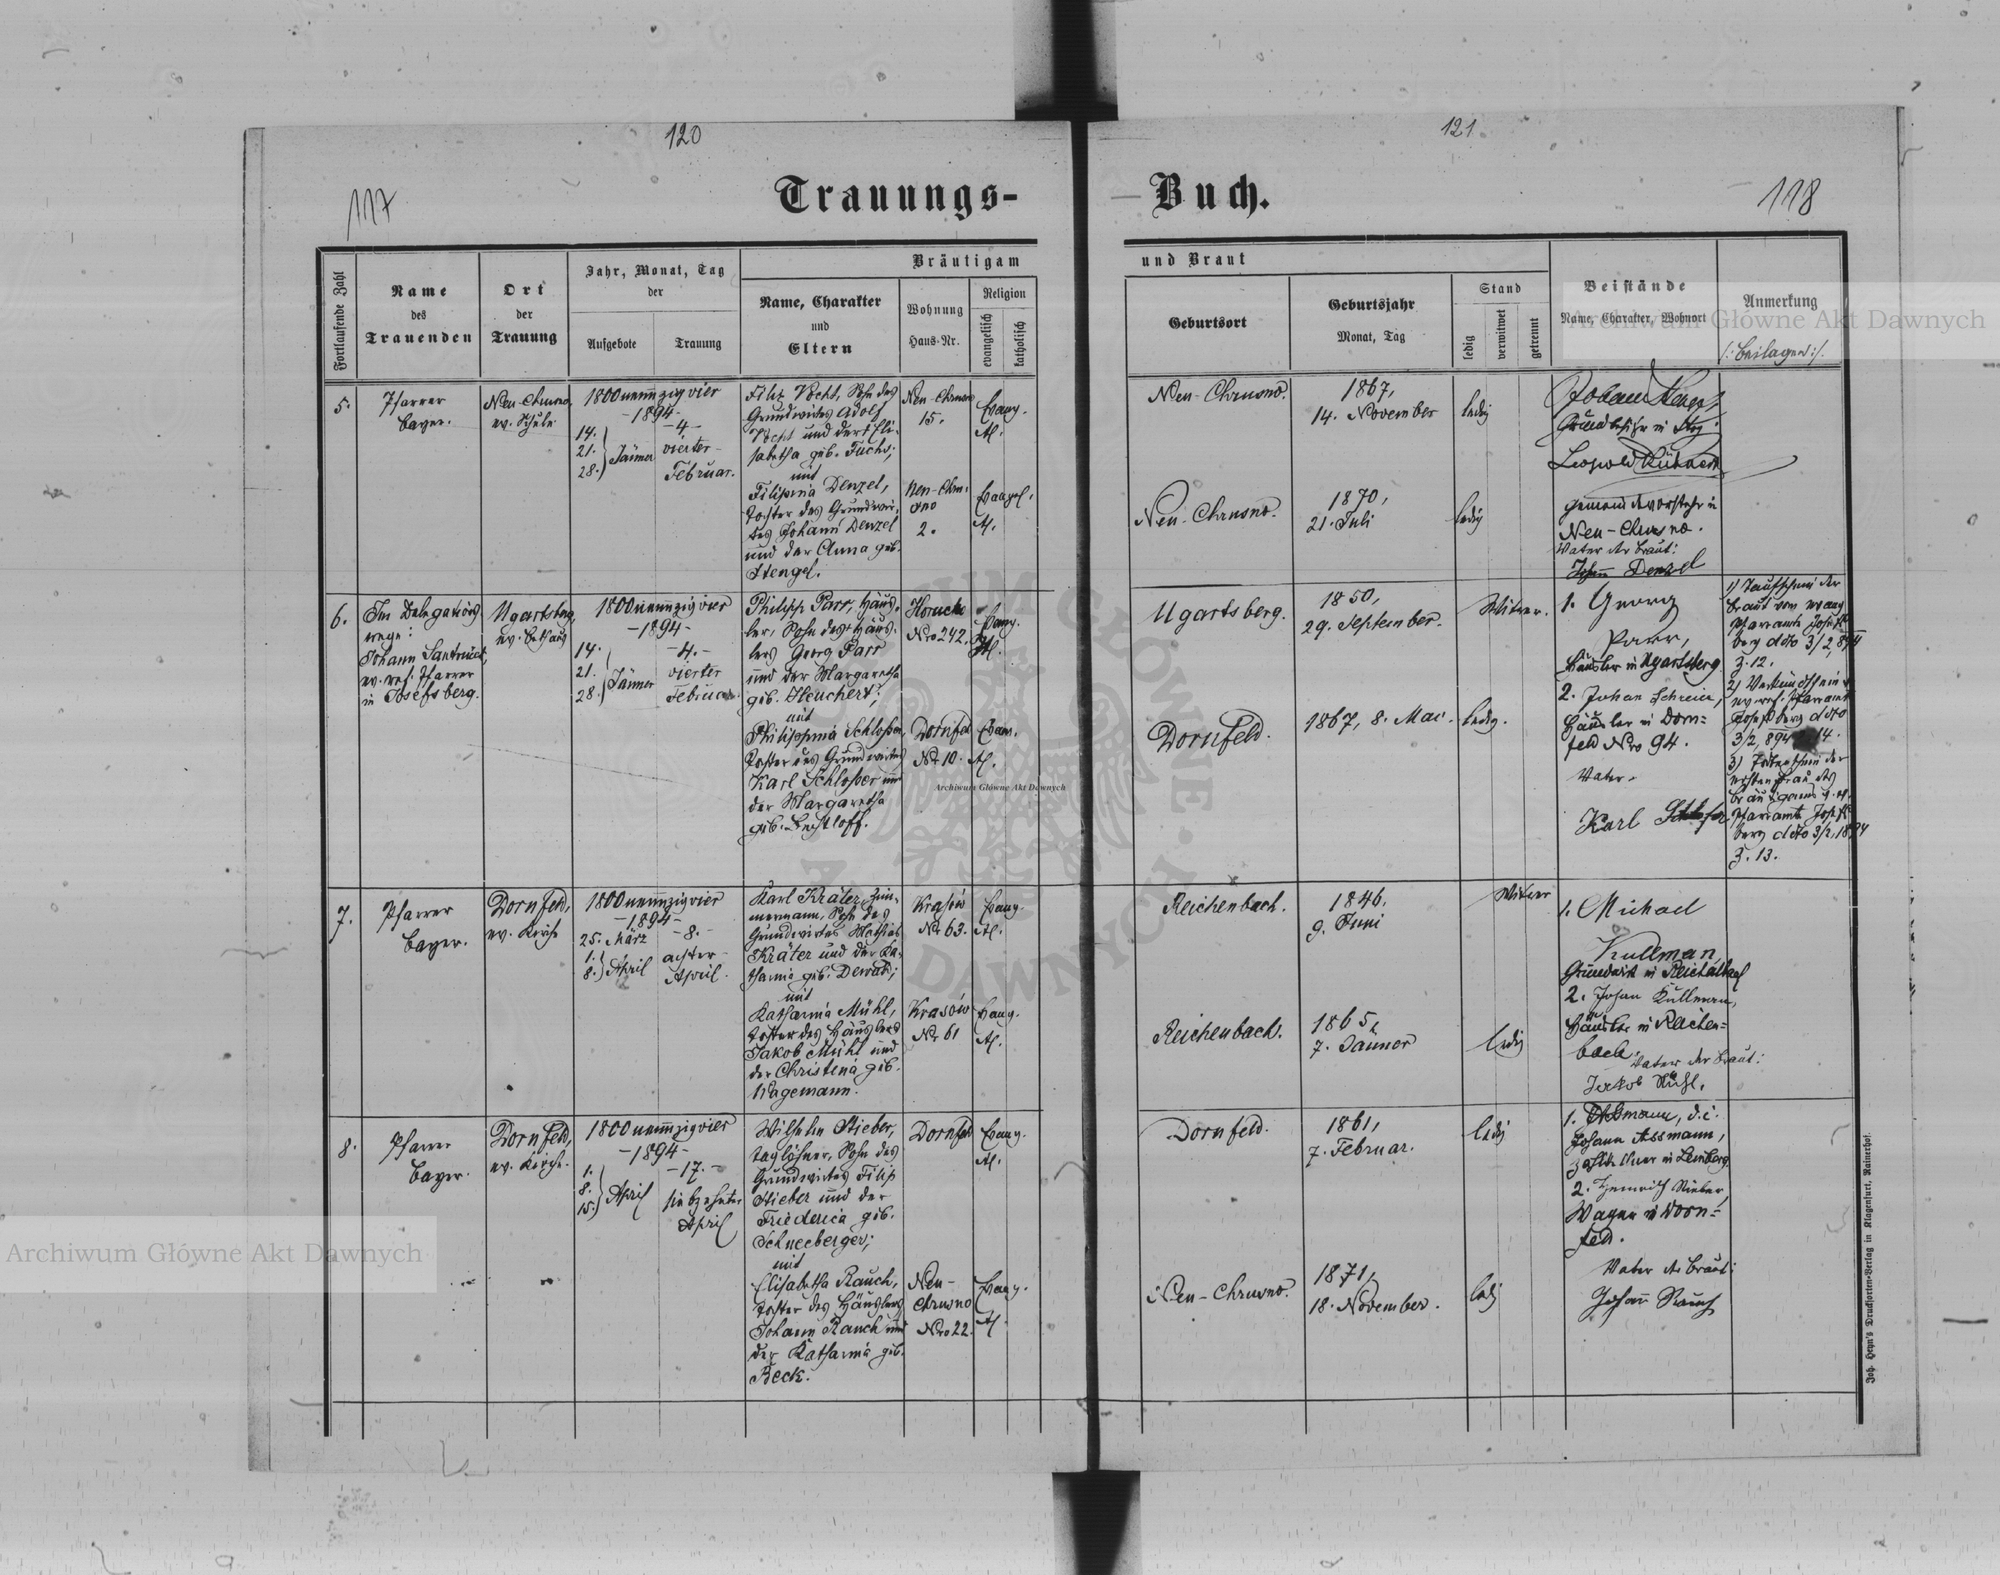 120
121
117
Trauungs-
Buch.
118
Fortlaufende Zahl
Name
des
Trauenden
Ort
der
Trauung
Jahr, Monat, Tag
der
Aufgebote
Trauung
Bräutigam
Name, Charakter
und
Eltern
Wohnung
Haus-Nr.
Religion
evangelisch
katholisch
und Braut
Geburtsort
Geburtsjahr
Monat, Tag
Stand
ledig
verwitwet
getrennt
Beistände
Name, Charakter, Wohnort
Anmerkung
/: Beilagen :/.
5.
Pfarrer
Bayer.
Neu-Chrusno,
ev. Schule
1800neunzigvier
-1894-
14.
21.
28.
Jänner
-4-
vierter
Februar.
Filip Vocht, Sohn des
Grundwirtes Adolf
Vocht und der Eli-
sabetha geb. Fuchs;
mit
Filipina Denzel,
Tochter des Grundwir-
tes Johann Denzel
und der Anna geb.
Stengel.
Neu-Chrusno
15.
Evang.
A.
Neu-Chru-
sno
2.
Evangel.
A.
Neu-Chrusno.
1867,
14. November
ledig
Neu-Chrusno.
1870,
21. Juli
ledig
Johann
Grundbesitzer in
Leopold
Gemeindevorsteher in
Neu-Chrusno.
Vater der Braut:
Johann Denzel
6.
Im Delegations
wege:
Johann
ev. ref. Pfarrer
in Josefsberg.
Ugartsberg,
ev. Bethaus
1800neunzigvier
-1894-
14.
21.
28.
Jänner
-4.-
vierter
Februar.
Philipp Parr, Häus-
ler, Sohn des Häus-
lers Georg Parr
und der Margaretha
geb. Heuchert;
mit
Philippina Schloßer,
Tochter des Grundwirtes
Karl Schloßer und
der Margaretha
geb. Bechtloff.
Horucko
Nro 242.
Evang.
Dornfeld
Nr 10.
Evan.
A.
Ugartsberg.
1850,
29. September.
Witwer.
Dornfeld.
1867, 8. Mai.
ledig.
1. Georg
Parr,
Häusler in Ugartsberg
2. Johan Schreier,
Häusler in Dorn-
feld Nro 94.
Vater:
Karl Schloßer
1) Taufschein der
Braut vom evang
Pfarramte Josefs-
berg ddto 3/2, 894
Z. 12.
2) Verkündschein v.
ev. ref. Pfarramt
Josefsberg ddto
3/2, 894 14.
3) Totenschein der
ersten Frau des
Bräutigams v. ev.
Pfarramt Josefs-
berg ddto 3/2, 1894
Z. 13.
7.
Pfarrer
Bayer.
Dornfeld,
ev. Kirche
1800neunzigvier
-1894-
25. März
1.
8.
April
-8.-
achter
April.
Karl Kräter, Zim-
mermann, Sohn des
Grundwirtes Mathias
Kräter und der Ka-
tharina geb. ;
mit
Katharina Mühl,
Tochter des Häuslers
Jakob Mühl und
der Christina geb.
Wagemann.
Krasów
Nr 63.
Evang.
A.
Krasów
Nr 61
Evang.
A.
Reichenbach.
1846,
9. Juni
Witwer
Reichenbach.
1865,
7. Jänner
ledig
1. Michael
Kullman,
Grundwirt in Reichenbach
2. Johan Kullmann,
Häusler in Reichen-
bach.
Vater der Braut:
Jakob Mühl.
8.
Pfarrer
Bayer.
Dornfeld,
ev. Kirche.
1800neunzigvier
-1894-
1.
8.
15.
April
-17.-
siebzehnter
April
Wilhelm Stieber,
Taglöhner, Sohn des
Grundwirtes Filip
Stieber und der
Friederica geb.
Schneeberger;
mit
Elisabetha Rauch,
Tochter des Häuslers
Johann Rauch und
der Katharina geb.
Beck.
Dornfeld
Evang.
A.
Neu-
Chrusno
Nro 22.
Evang.
A.
Dornfeld.
1861,
7. Februar.
ledig
Neu-Chrusno.
1871,
18. November.
ledig
1. Aßmann, d.i.
Johann Assmann,
Zahlkellner in Lemberg.
2. Heinrich Stieber,
Wagner in Dorn-
feld.
Vater der Braut:
Johann Rauch
Joh. Heyn's Drucksorten-Verlag in Klagenfurt, Rainerhof.
Archiwum Główne Akt Dawnych
Archiwum Główne Akt Dawnych
Archiwum Główne Akt Dawnych
ARCHIWUM GŁÓWNE · AKT DAWNYCH ·